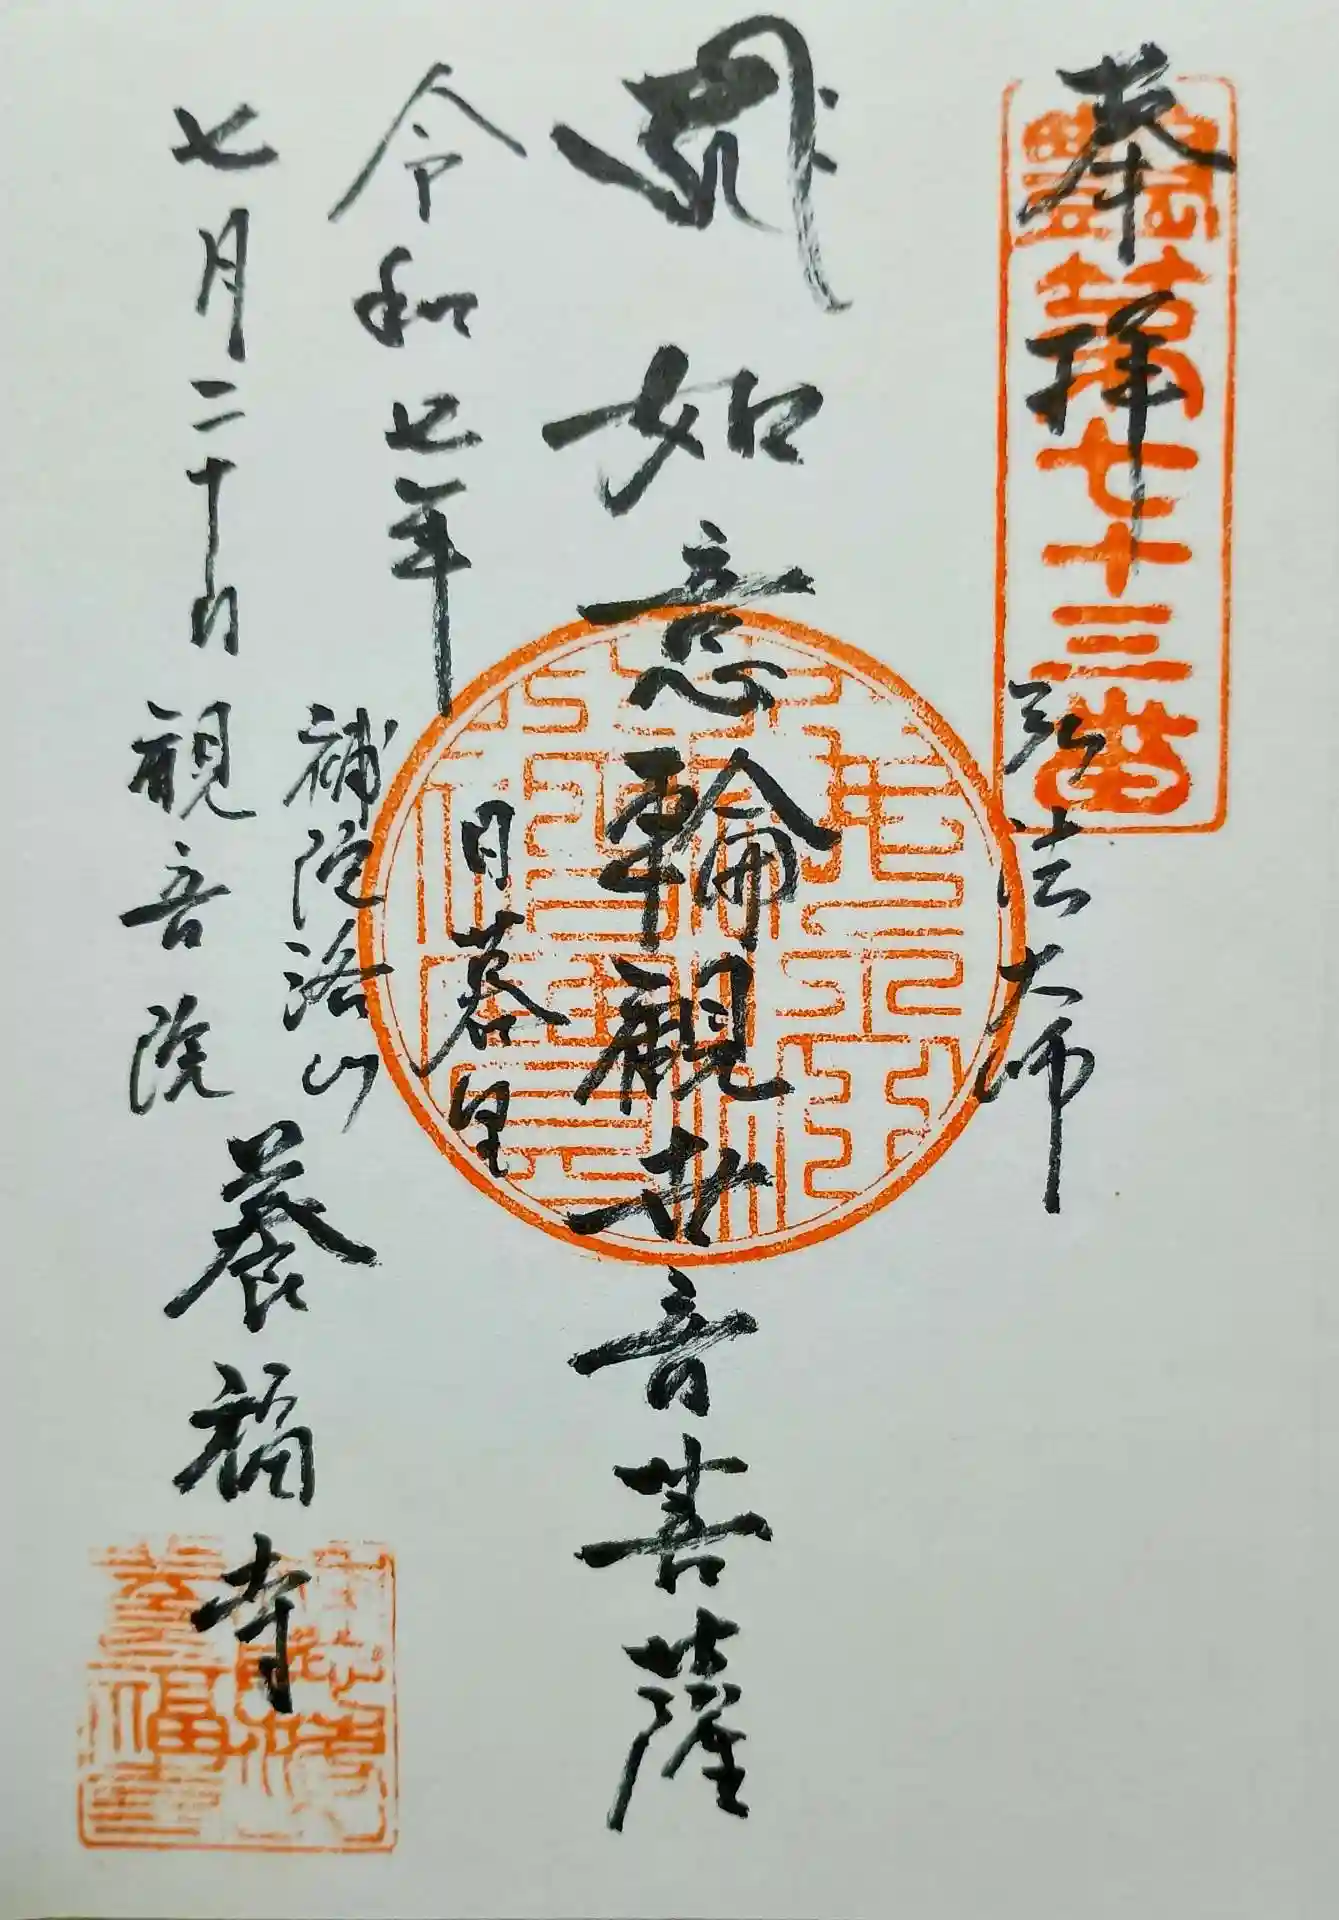 奉拝
第七十三番
弘法大師
如意輪観世音菩薩
日暮里
令和七年
補陀洛山
養福寺
七月二十日
観音院